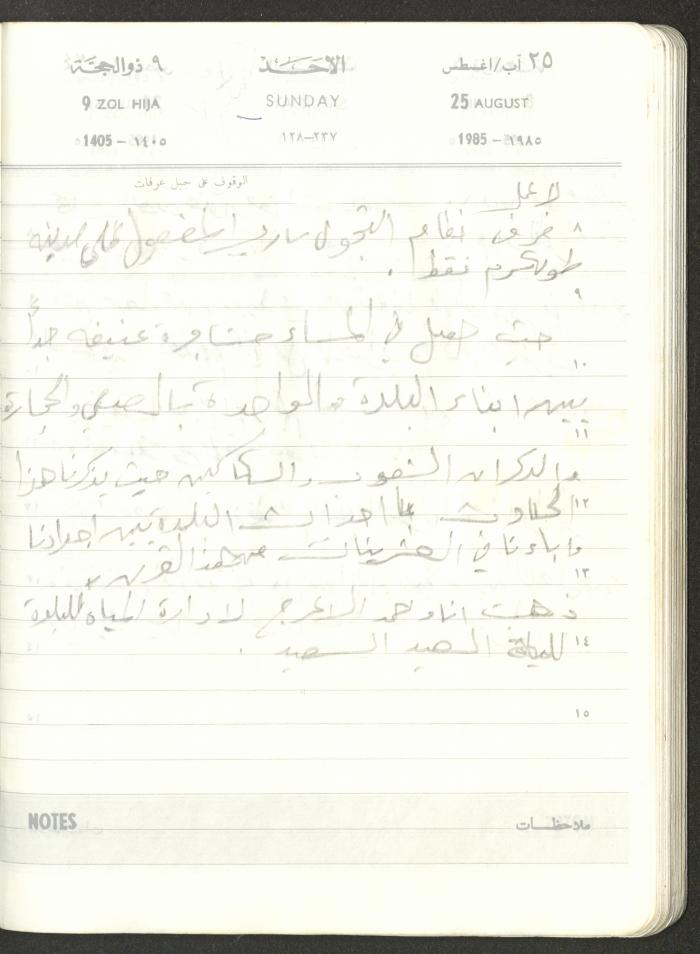 ٢٥ آب/اغسطس الاحَــد ٩ ذوالحجَّة
25 AUGUST SUNDAY 9 ZOL HIJA
1985 - ١٩٨٥ ٢٣٧-١٢٨ 1405 - ١٤٠٥
الوقوف على جبل عرفات
لا عمل
٨ فرض نظام التجول ساري المفعول على مدينة
طولكرم فقط .
٩
حيث حصل في المساء مشاجرة عنيفه جداً
١٠
بين ابناء البلدة الواحدة بالعصي والحجارة
١١
والسكاكين حيث يذكرنا هذا
١٢ الحادث احداث البلدة بين اجدادنا
واباءنا في العشرينات من هذا القرن
١٣
ذهبت انا الاعرج لادارة المياه للبلدة
١٤ العيد السعيد .
١٥
NOTES ملاحظـات